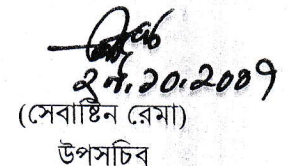 ২৯.১০.২০১৭
(সেবাষ্টিন রেমা)
উপসচিব